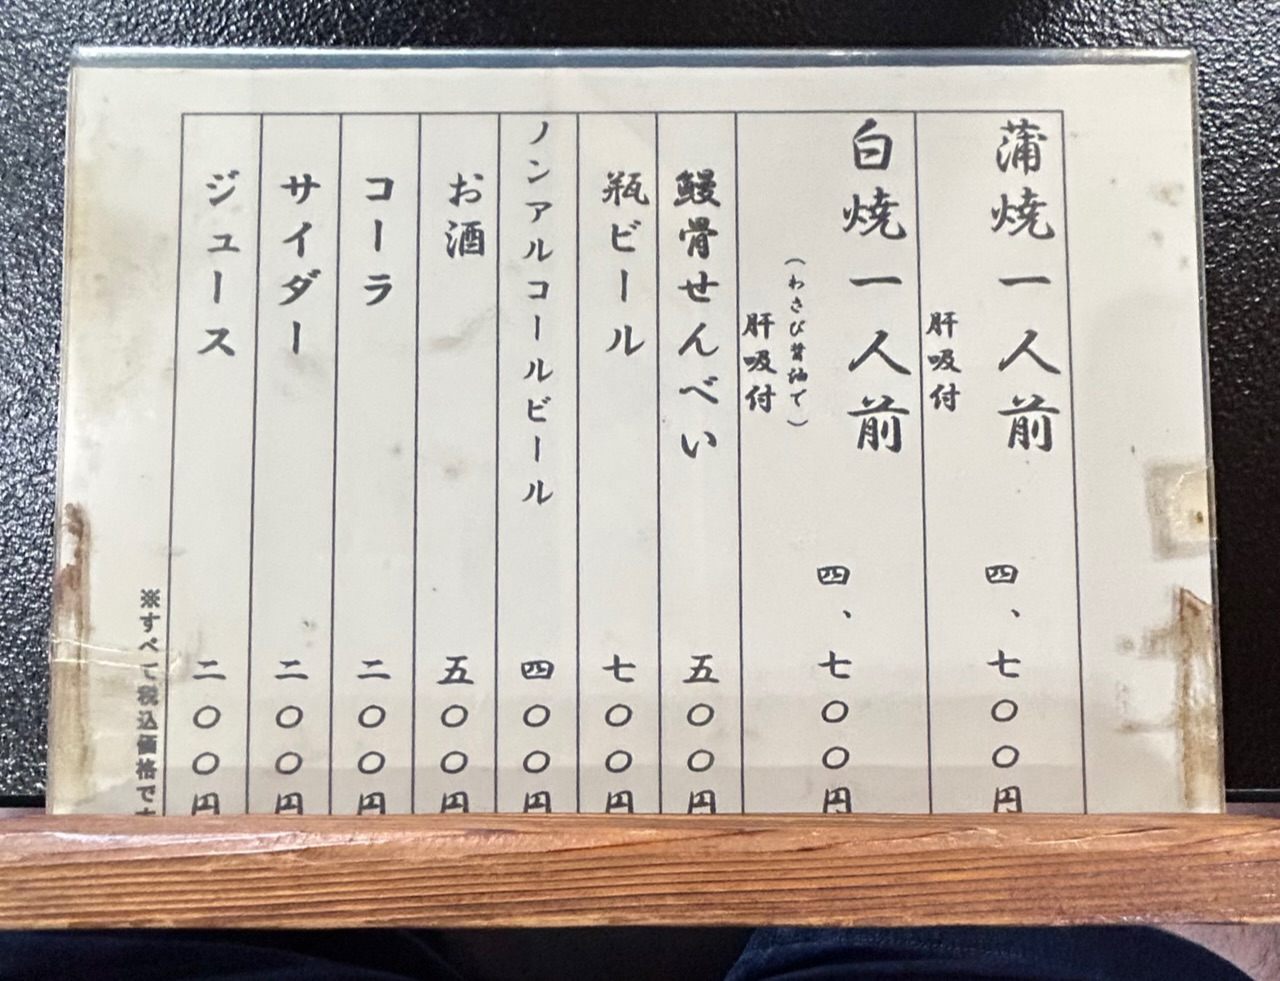 蒲焼一人前 四、七〇〇円
肝吸付
白焼一人前 四、七〇〇円
(わさび醤油で)
肝吸付
鰻骨せんべい 五〇〇円
瓶ビール 七〇〇円
ノンアルコールビール 四〇〇円
お酒 五〇〇円
コーラ 二〇〇円
サイダー 二〇〇円
ジュース 二〇〇円
※すべて税込価格で